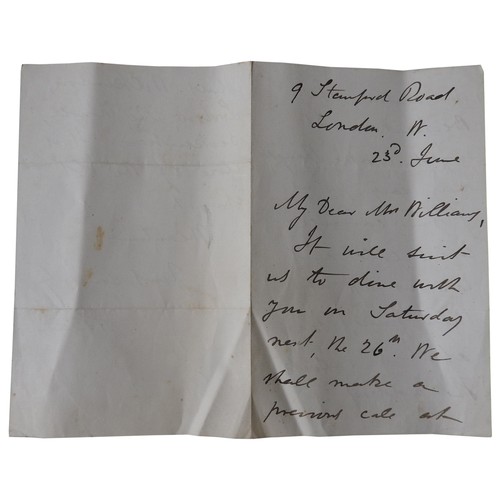 9 Stamford Road.
London. W.
23d. June
My Dear Mrs Williams,
It will suit
us to dine with
you on Saturday
next, the 26th. We
shall make a
previous call at